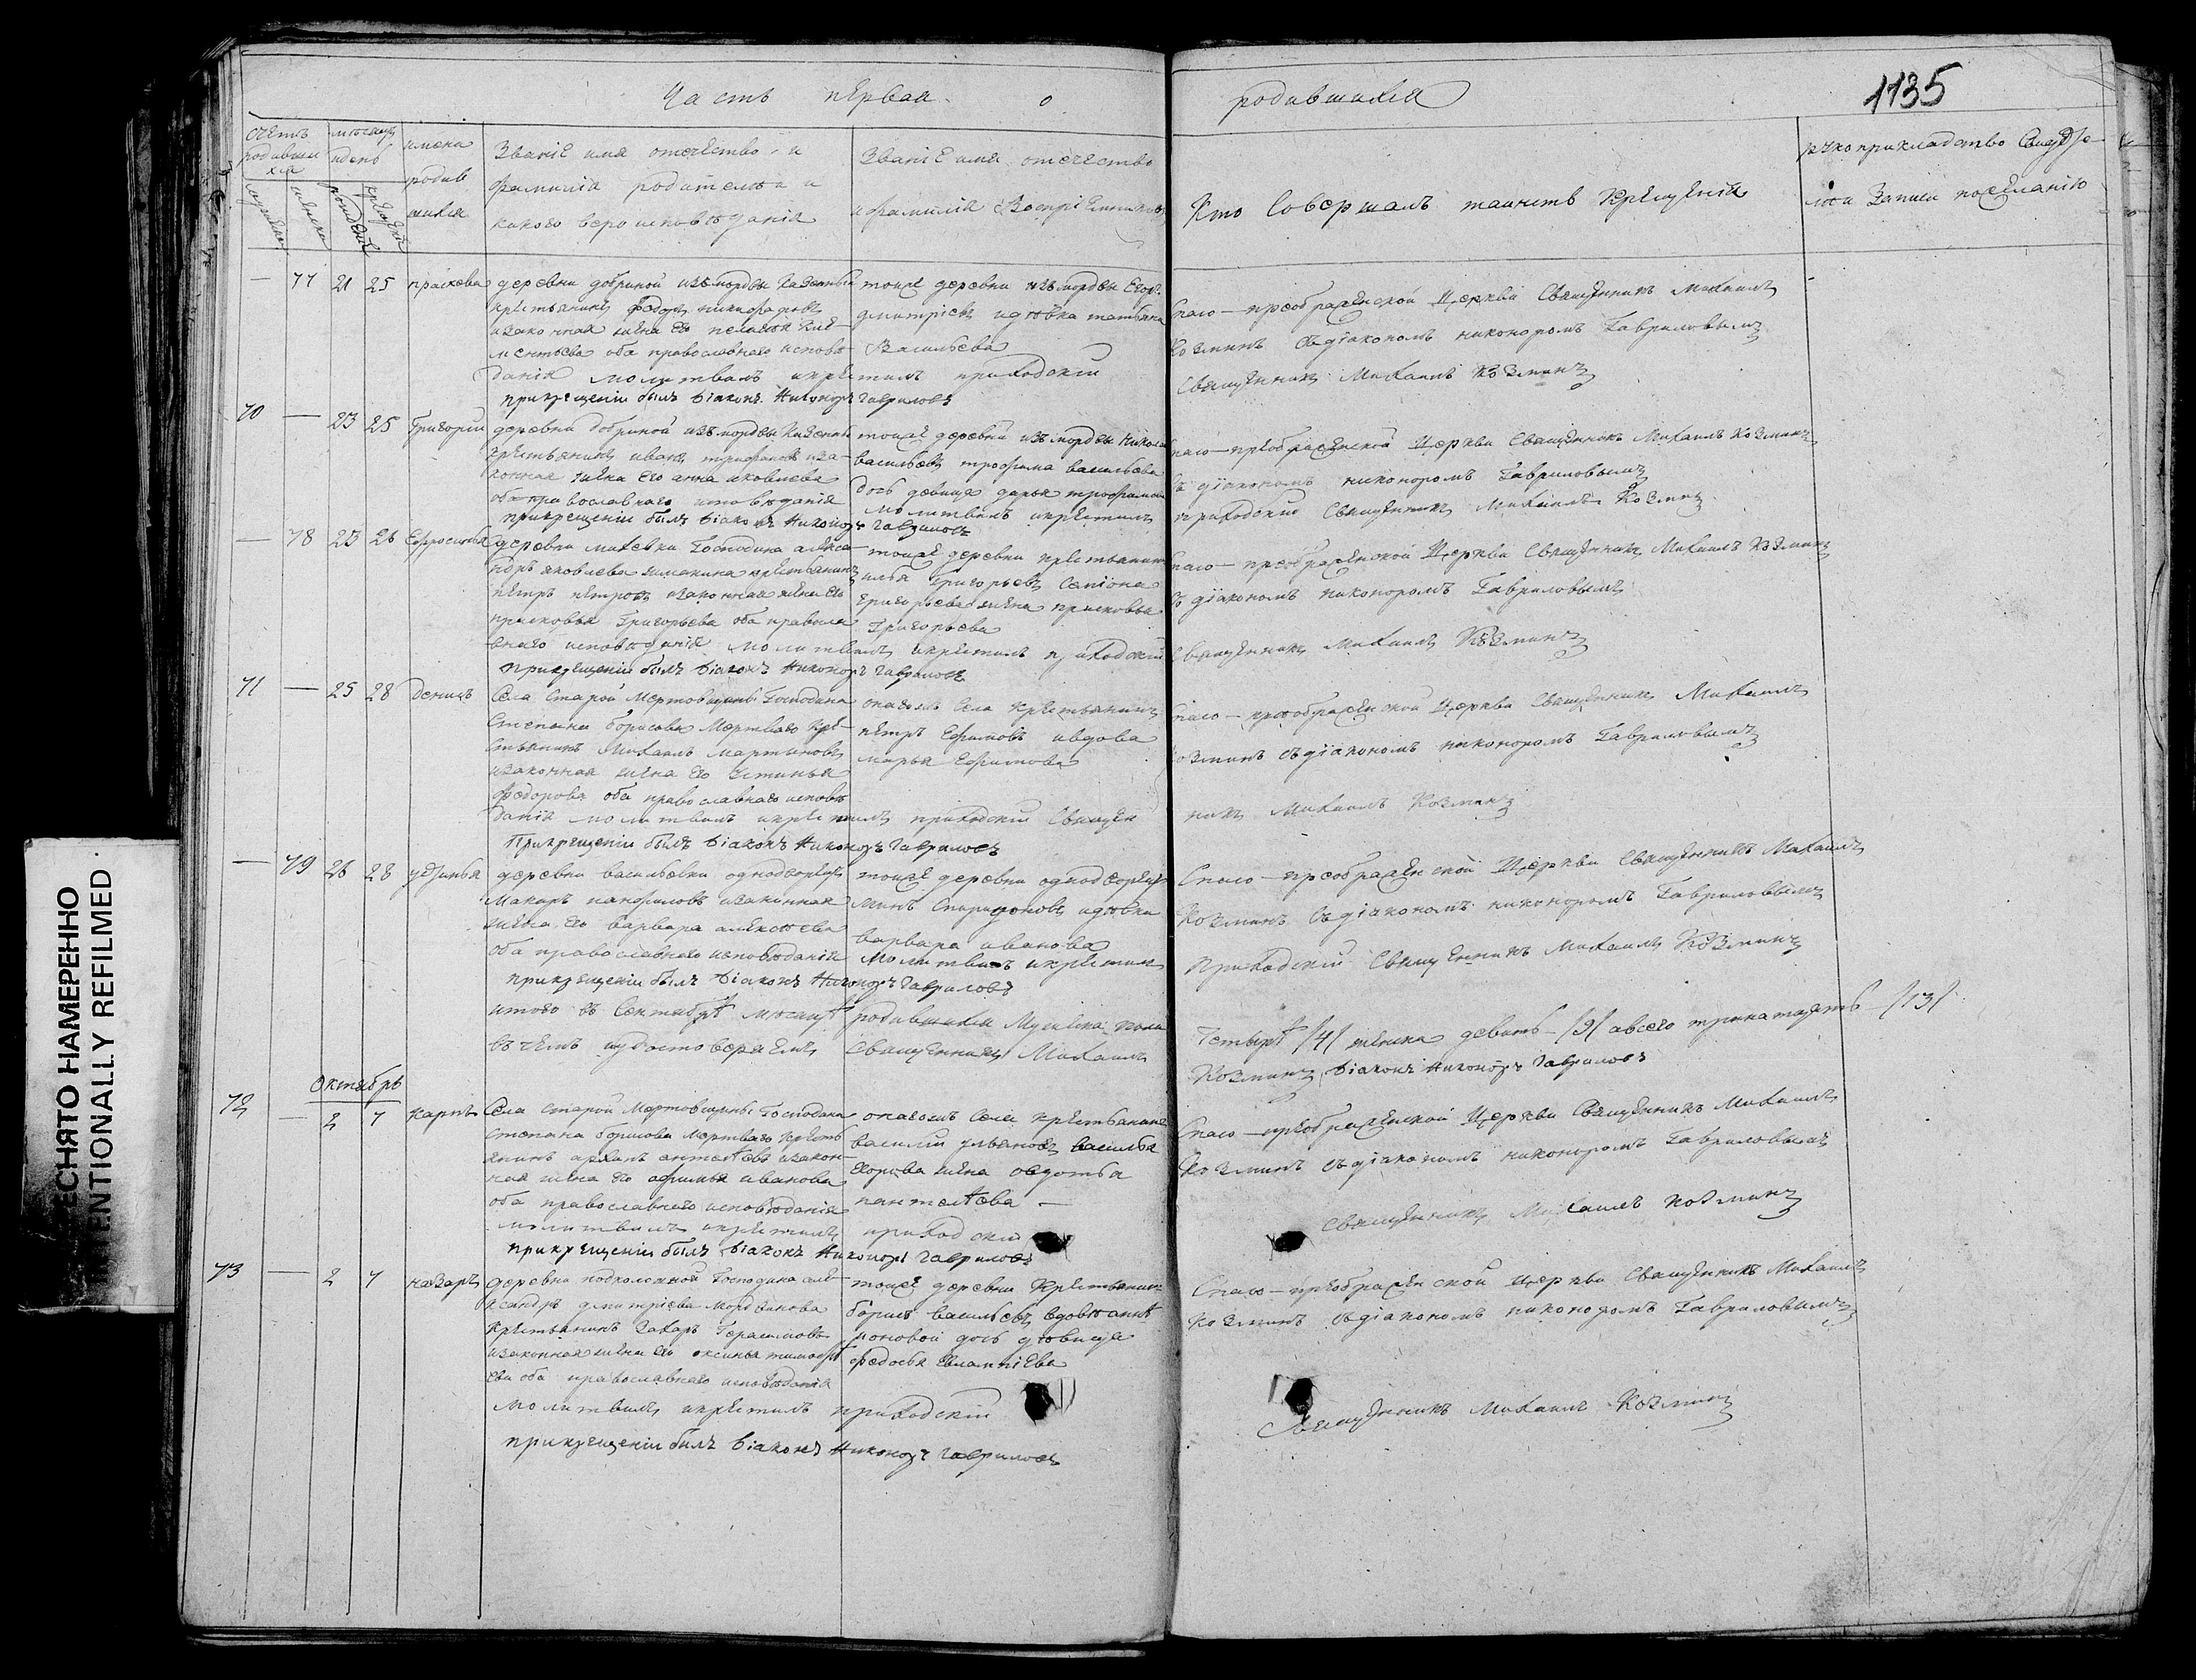 Часть первая о родившихся
1135
счетъ родившихся
мужеска
женска
месяцъ и день
рожденія
крещенія
имена родившихся
Званіе имя отечество и
фамилія родителей и
какого вероисповѣданія
Званіе имя отечество
и фамилія Воспріемниковъ
Кто Совершалъ таинств Крещенія
рукоприкладство Свидѣте-
лей Записи по желанію
— 77 21 25 праскева
деревни добриной изъ мордвы Казенный
крестьянинъ Федоръ никифоровъ
изаконная жена его пелагѣя Кле-
ментьева оба православнаго исповѣ-
данія молитвилъ икрестилъ приходскіи
прикрещеніи былъ Діаконъ Никоноръ Гавриловъ
тоиже деревни изъ мордвы Егоръ
дмитріевъ идѣвка татьяна
Васильева
Спасо-преображенской Церкви Священникъ Михаилъ
Козминъ Съдіакономъ никоноромъ Гавриловымъ
Священникъ Михаилъ Козминъ
70 — 23 25 Григории
деревни добриной изъ мордвы Казенны
крестьянинъ иванъ трифоновъ иза-
конная жена его анна яковлева
оба православнаго исповѣданія
прикрещеніи былъ Діаконъ Никоноръ Гавриловъ
тоиже деревни изъ мордвы никола
васильевъ трофима васильева
дочь девица дарья трофимова
молитвилъ икрестилъ
Спасо-преображенской Церкви Священникъ Михаилъ Козминъ
съ діакономъ никоноромъ Гавриловымъ
приходскіи Священникъ Михаилъ Козминъ
— 78 23 26 Ефросинья
деревни михевки Господина алекса-
ндръ яковлева крестьянинъ
петръ петровъ изаконная жена его
прасковья Григорьева оба правосла-
внаго исповѣданія молитвилъ икрестилъ приходскіи
прикрещеніи былъ Діаконъ Никоноръ Гавриловъ
тоиже деревни крестьянинъ
илья Григорьевъ Семіона
григорьева жена прасковья
Григорьева
Спасо-преображенской Церкви Священникъ Михаилъ Козминъ
съ діакономъ никоноромъ Гавриловымъ
Священникъ Михаилъ Козминъ
71 — 25 28 Денисъ
Села Старой Мертовщины Господина
Степана борисова Мертваго Кре-
стьянинъ Михаилъ мартыновъ
изаконная жена его Устинья
федорова оба православнаго исповѣ
данія молитвилъ икрестилъ приходскіи Священ
Прикрещеніи былъ Діаконъ Никоноръ Гавриловъ
онагожъ Села Крестьянинъ
петръ Ефимовъ ивдова
марья Ефимова
Спасо-преображенской Церкви Священникъ Михаилъ
Козминъ съдіакономъ никоноромъ Гавриловымъ
никъ Михаилъ Козминъ
— 79 26 28 устинья
деревни васильевки однодворецъ
Макаръ панфиловъ изаконная
жена его варвара алексѣева
оба православнаго исповѣданія
прикрещеніи былъ Діаконъ Никоноръ Гавриловъ
тоиже деревни однодворецъ
минъ Спиридоновъ идѣвка
варвара иванова
Молитвилъ икрестилъ
Спасо-преображенской Церкви Священникъ Михаилъ
Козминъ Съдіакономъ никоноромъ Гавриловымъ
Приходскіи Священникъ Михаилъ Козминъ
итого въ Сентябрѣ месяцѣ родившихся Мужеска пола
Четырѣ /4/ женска девять /9/ авсего тринатцять /13/
въ чемъ иудостоверяемъ Священникъ Михаилъ
Козминъ Діаконъ Никоноръ Гавриловъ
Октябрь
72 — 2 7 карпъ
Села Старой Мертовщины Господина
Степана борисова Мертваго Кресть
янинъ архипъ антиповъ изакон-
ная жена его афимья иванова
оба православнаго исповѣданія
молитвилъ икрестилъ приходскіи
прикрещеніи былъ Діаконъ Никоноръ Гавриловъ
онагожъ Села крестьянинъ
василіи ульяновъ василья
егорова жена овдотья
пантелѣева —
Спасо-преображенской Церкви Священникъ Михаилъ
Козминъ съдіакономъ никоноромъ Гавриловымъ
Священникъ Михаилъ Козминъ
73 — 2 7 назаръ
деревни Господина але-
ксандръ дмитріева
Крестьянинъ Захаръ Герасимовъ
изаконная жена его оксинья тимофѣ
ева оба православнаго исповѣданія
Молитвилъ икрестилъ приходскіи
прикрещеніи былъ Діаконъ Никоноръ Гавриловъ
тоиже деревни Крестьянинъ
борисъ васильевъ
дочь дѣвица
федосья Евлампіева
Спасо-преображенской Церкви Священникъ Михаилъ
Козминъ Съдіакономъ никоноромъ Гавриловымъ
Священникъ Михаилъ Козминъ
ЕСНЯТО НАМЕРЕННО
ENTIONALLY REFILMED